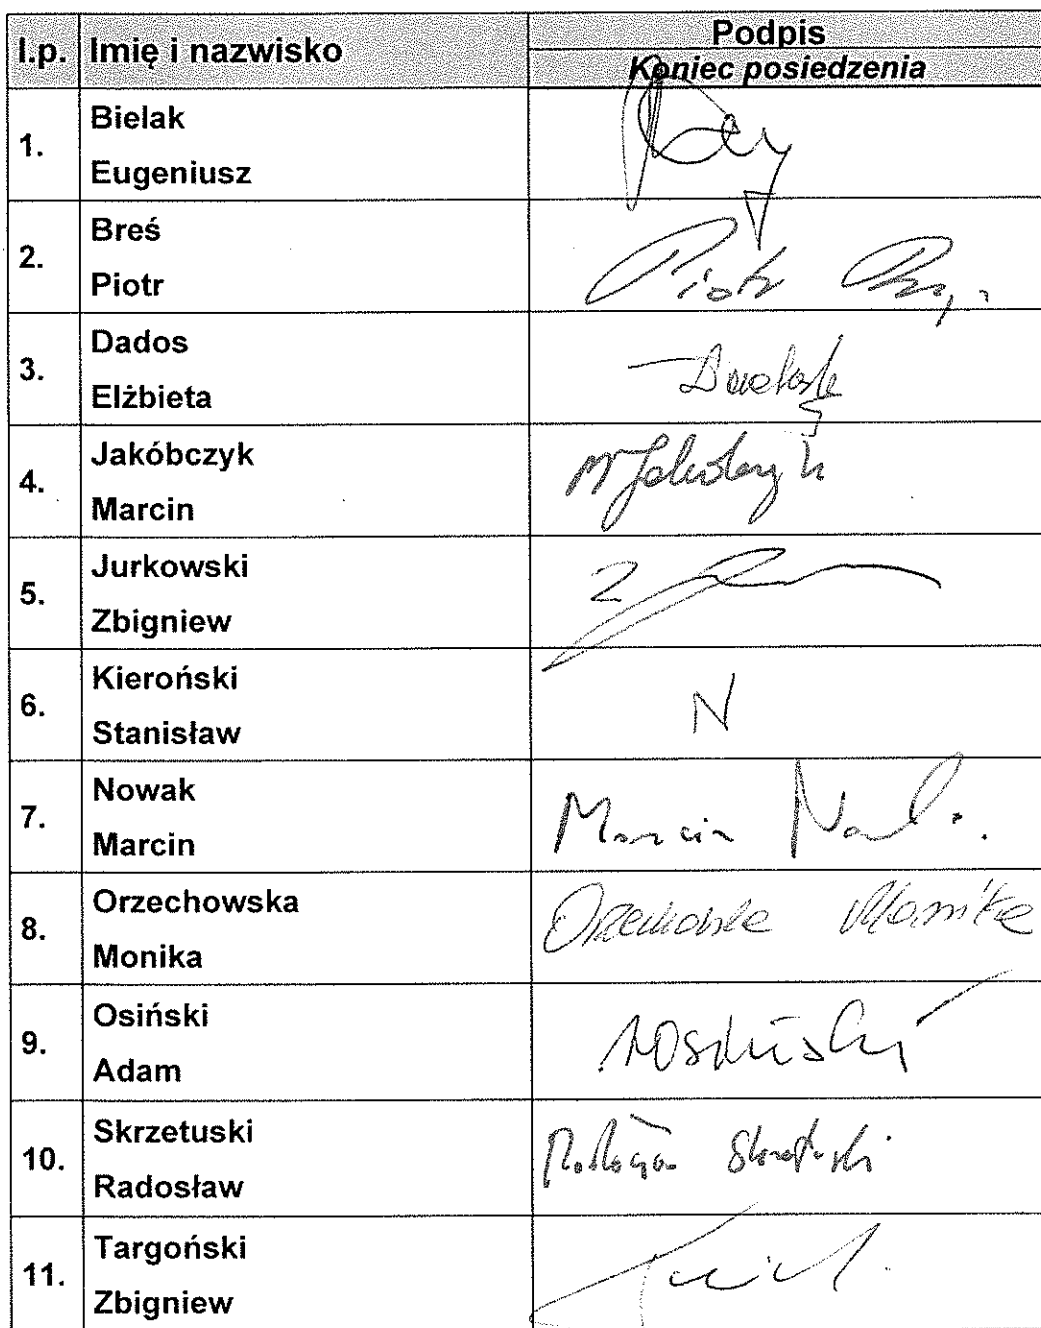 l.p. Imię i nazwisko Podpis
Koniec posiedzenia
1. Bielak
Eugeniusz
2. Breś
Piotr
Piotr
3. Dados
Elżbieta
4. Jakóbczyk
Marcin
5. Jurkowski
Zbigniew
Z
6. Kieroński
Stanisław
N
7. Nowak
Marcin
Marcin Nowak
8. Orzechowska
Monika
Orzechowska Monika
9. Osiński
Adam
AOsiński
10. Skrzetuski
Radosław
Radosław Skrzetuski
11. Targoński
Zbigniew